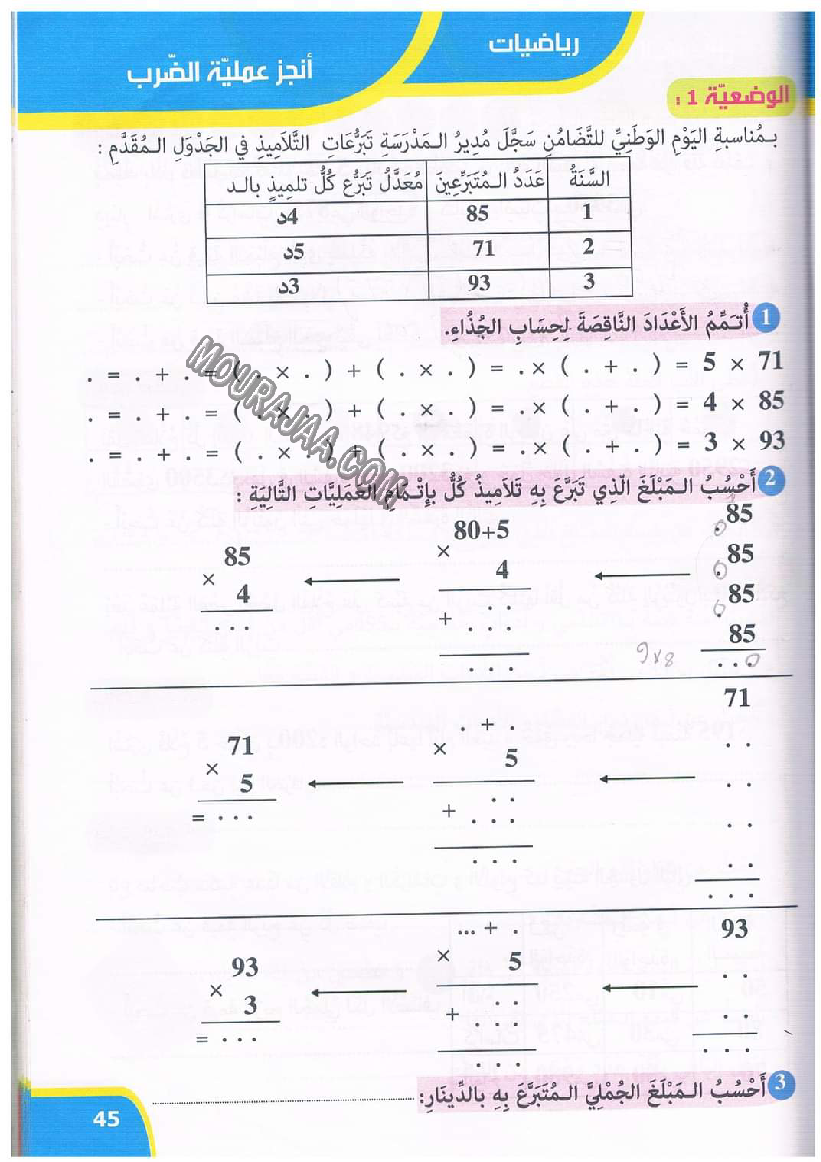 رياضيات
أنجز عمليّة الضّرب
الوضعيّة 1 :
بـمُناسبةِ اليَوْمِ الوَطَنِيِّ للتَّضَامُنِ سَجَّلَ مُدِيرُ الـمَدْرَسَةِ تَبَرُّعَاتِ التَّلَامِيذِ في الجَدْوَلِ الـمُقَدَّمِ :
السَّنَةُ عَدَدُ الـمُتَبَرِّعِينَ مُعَدَّلُ تَبَرُّعِ كُلُّ تلميذٍ بالـد
1 85 4د
2 71 5د
3 93 3د
1 أُتـمِّمُ الأَعْدَادَ النَّاقِصَةَ لِـحِسَابِ الـجُذُاءِ.
. = . + . = ( . × . ) + ( . × . ) = . × ( . + . ) = 5 × 71
. = . + . = ( . × . ) + ( . × . ) = . × ( . + . ) = 4 × 85
. = . + . = ( . × . ) + ( . × . ) = . × ( . + . ) = 3 × 93
MOURAJAA.COM
2 أَحْسُبُ الـمَبْلَغَ الَّذِي تَبَرَّعَ بِهِ تَلَامِيذُ كُلُّ بِإِتْـمَامِ العَمَلِيَّاتِ التَّالِيَةِ :
85
85
85
85
. . .
80+5
×
4
. .
+ . . .
. . .
85
×
4
. . .
9×8
71
. .
. .
. .
. .
. . .
. + .
×
5
. .
+ . . .
. . .
71
×
5
= . . .
93
. .
. .
. . .
... + .
×
5
. .
+ . . .
. . .
93
×
3
= . . .
3 أَحْسُبُ الـمَبْلَغَ الجُمْلِيَّ الـمُتَبَرَّعَ بِهِ بالدِّينَارِ: ............
45